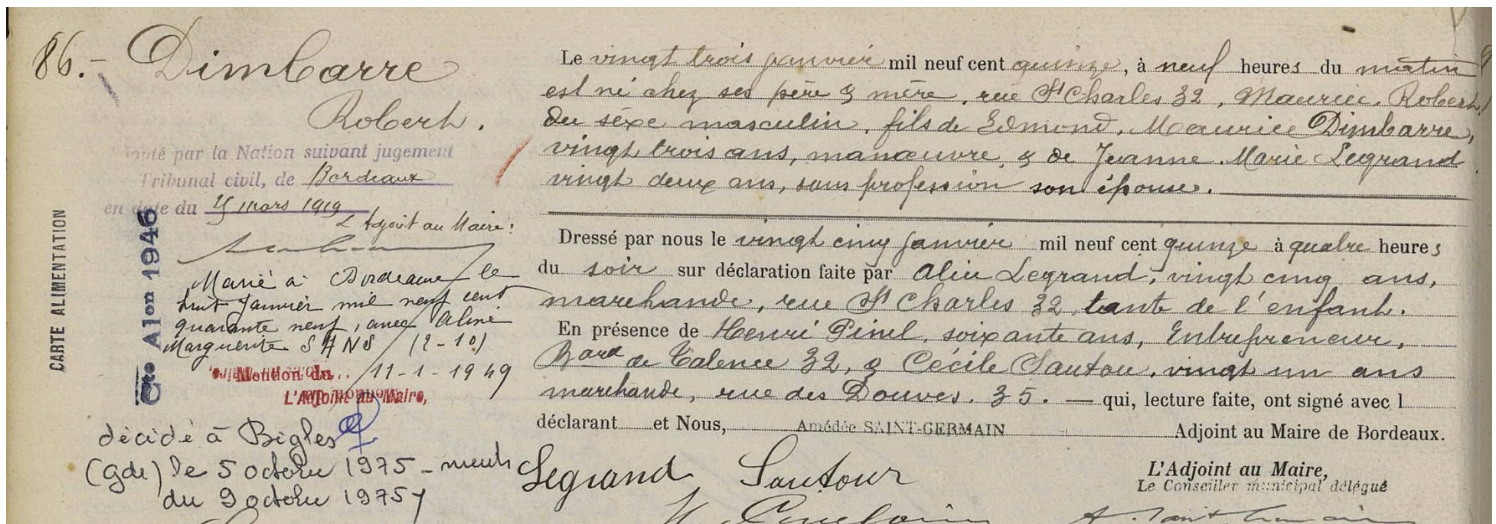 86.- Dimbarre
Robert.
Adopté par la Nation suivant jugement
Tribunal civil, de Bordeaux
en date du 5 mars 1919
L'Adjoint au Maire:
CARTE ALIMENTATION
Cte Alon 1946
Marié à Bordeaux le
huit Janvier mil neuf cent
quarante neuf, avec Aline
Marguerite SANS (2-10)
Mention du 11-1-1949
L'Adjoint au Maire,
décédé à Bègles
(gde) le 5 octobre 1975 - ment
du 9 octobre 1975
Le vingt trois janvier mil neuf cent quinze, à neuf heures du matin
est né chez ses père & mère, rue St Charles 32, Maurice, Robert,
du sexe masculin, fils de Edmond, Maurice Dimbarre,
vingt trois ans, manœuvre, & de Jeanne Marie Legrand
vingt deux ans, sans profession son épouse.
Dressé par nous le vingt cinq janvier mil neuf cent quinze à quatre heures
du soir sur déclaration faite par Alice Legrand, vingt cinq ans,
marchande, rue St Charles 32, tante de l'enfant.
En présence de Henri Pinel, soixante ans, Entrepreneur,
Bard de Talence 32, & Cécile Sautou, vingt un ans
marchande, rue des Douves. 35. — qui, lecture faite, ont signé avec l
déclarant et Nous, Amédée SAINT-GERMAIN Adjoint au Maire de Bordeaux.
L'Adjoint au Maire,
Le Conseiller municipal délégué
Legrand Sautour